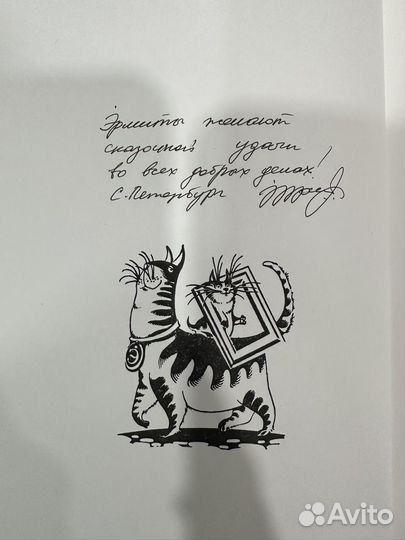 Эрмиты желают
сказочной удачи
во всех добрых делах!
С.Петербург
Avito